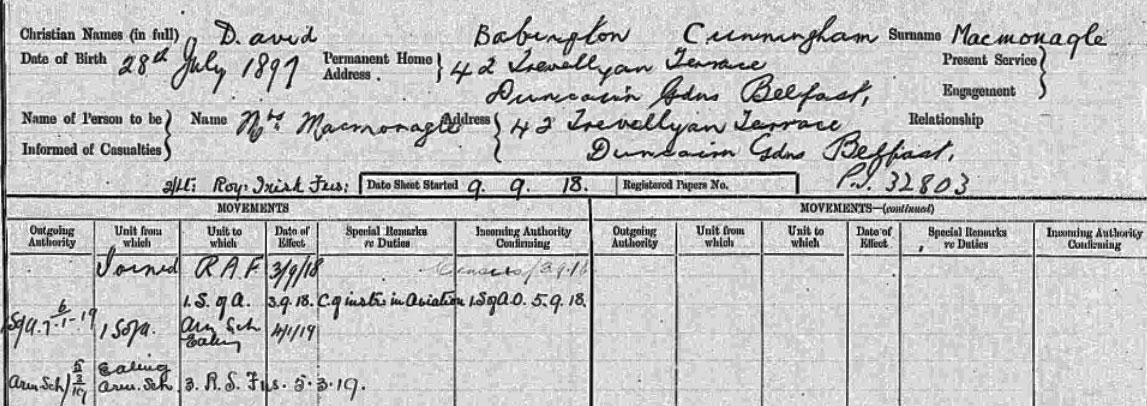 Christian Names (in full) David Babington Cunningham Surname Macmonagle
Date of Birth 28th July 1897 Permanent Home Address. 42 Trevellyan Terrace Present Service
Duncairn Gdns Belfast, Engagement
Name of Person to be Informed of Casualties Name Mrs Macmonagle Address 42 Trevellyan Terrace Relationship
Duncairn Gdns Belfast.
2/Lt: Roy: Irish Fus: Date Sheet Started 9. 9. 18. Registered Papers No. P.I. 32803
MOVEMENTS MOVEMENTS—(continued)
Outgoing Authority Unit from which Unit to which Date of Effect Special Remarks re Duties Incoming Authority Confirming Outgoing Authority Unit from which Unit to which Date of Effect Special Remarks re Duties Incoming Authority Confirming
Joined R A F 3/9/18
1. S. of A. 3.9.18. C. of instrs in Aviation 1. S of A.O. 5.9.18.
1 S of A. Arm Sch Ealing 4/1/19
Arm Sch/ 5/3/19 Ealing Arm. Sch 3. R. S. Fus. 5.3.19.